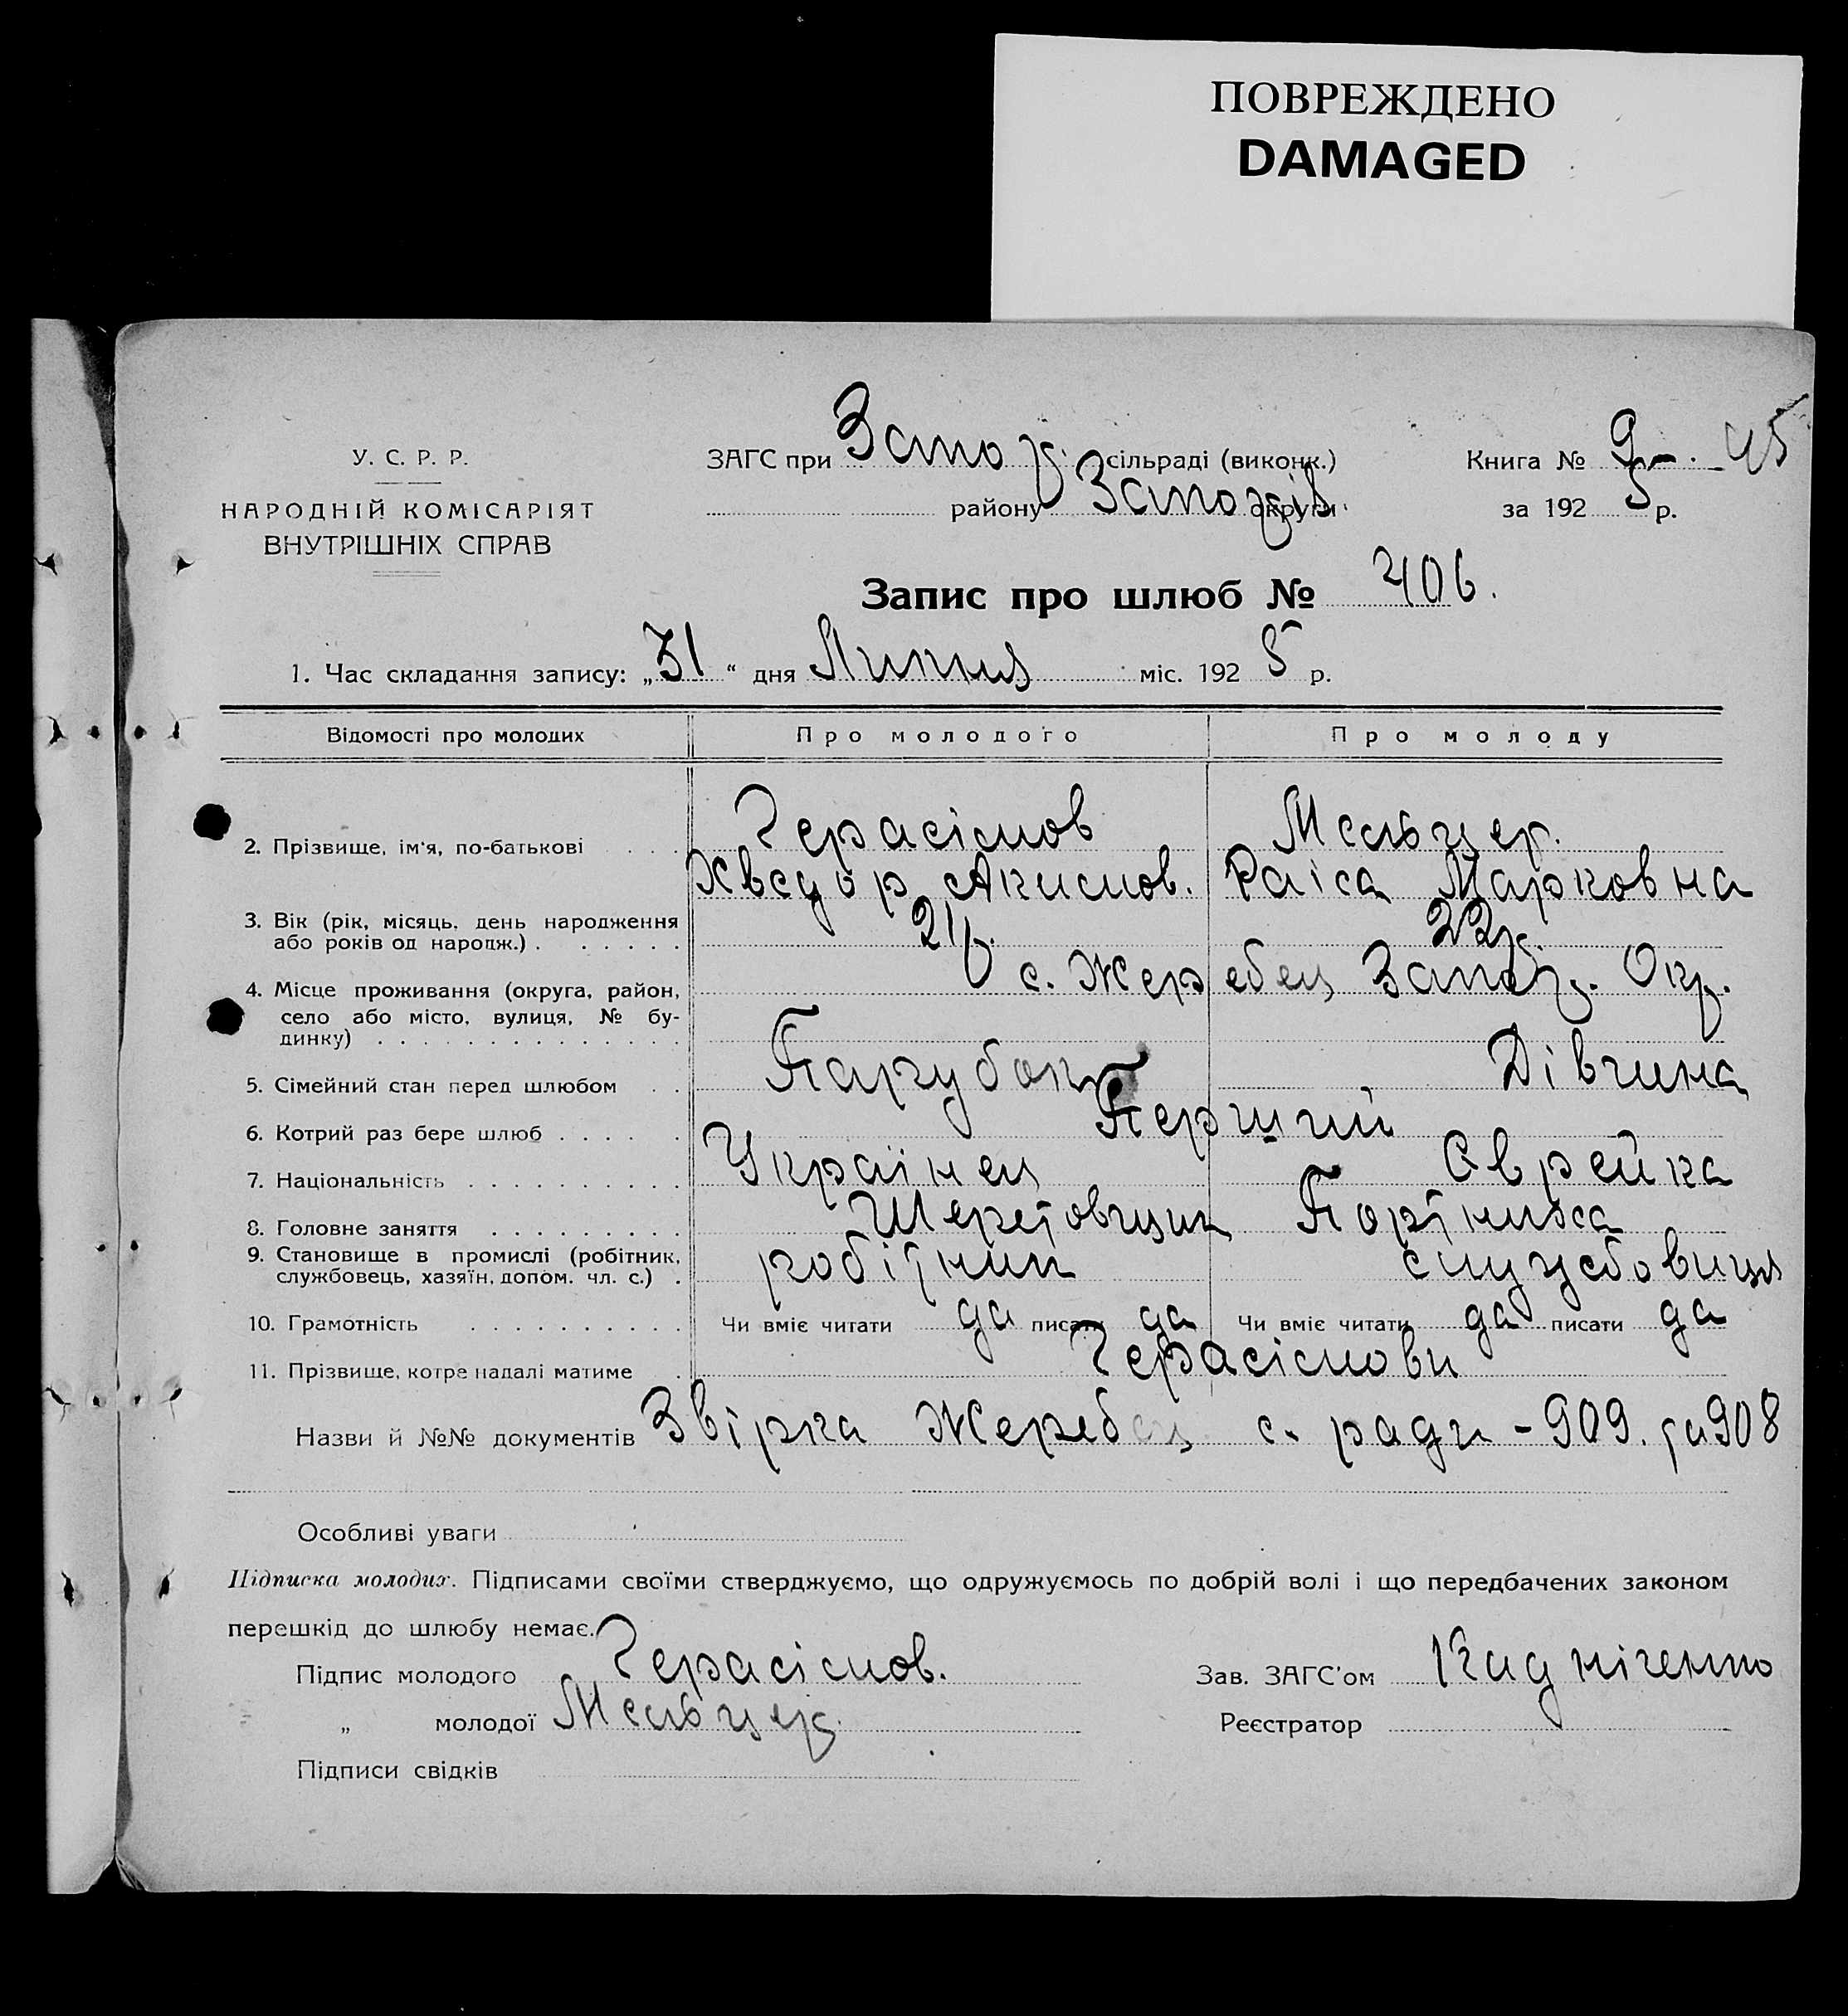 ПОВРЕЖДЕНО
DAMAGED
У. С. Р. Р.
НАРОДНІЙ КОМІСАРІЯТ
ВНУТРІШНІХ СПРАВ
ЗАГС при Запор. сільраді (виконк.)
району Запоріз округи
Книга № 9 – 45
за 192 5 р.
Запис про шлюб № 406.
1. Час складання запису: „31“ дня Липця міс. 192 5 р.
Відомості про молодих Про молодого Про молоду
Герасімов Мельцер.
2. Прізвище, ім'я, по-батькові Хведор Акимов. Раіса Марковна
3. Вік (рік, місяць, день народження
або років од народж.) 21р. 22р.
4. Місце проживання (округа, район, с. Жеребец Запор. Окр.
село або місто, вулиця, № бу-
динку)
5. Сімейний стан перед шлюбом Парубок Дівчина
6. Котрий раз бере шлюб Перший
7. Національність Українец Єврейка
8. Головне заняття Шеретовщик Портниха
9. Становище в промислі (робітник,
службовець, хазяїн, допом. чл. с.) робітник службовиця
10. Грамотність Чи вміє читати да писати да Чи вміє читати да писати да
11. Прізвище, котре надалі матиме Герасімови
Назви й №№ документів Звірка Жеребец с. ради - 909. та 908
Особливі уваги
Підписка молодих. Підписами своїми стверджуємо, що одружуємось по добрій волі і що передбачених законом
перешкід до шлюбу немає.
Підпис молодого Герасімов. Зав. ЗАГС'ом
„ молодої Мельцер. Реєстратор
Підписи свідків